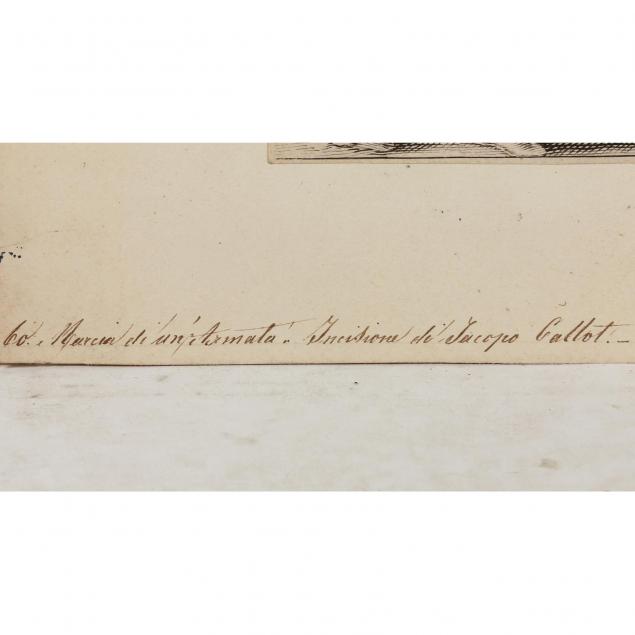 60. Marcia di un'Armata. Incisione di Jacopo Callot. _